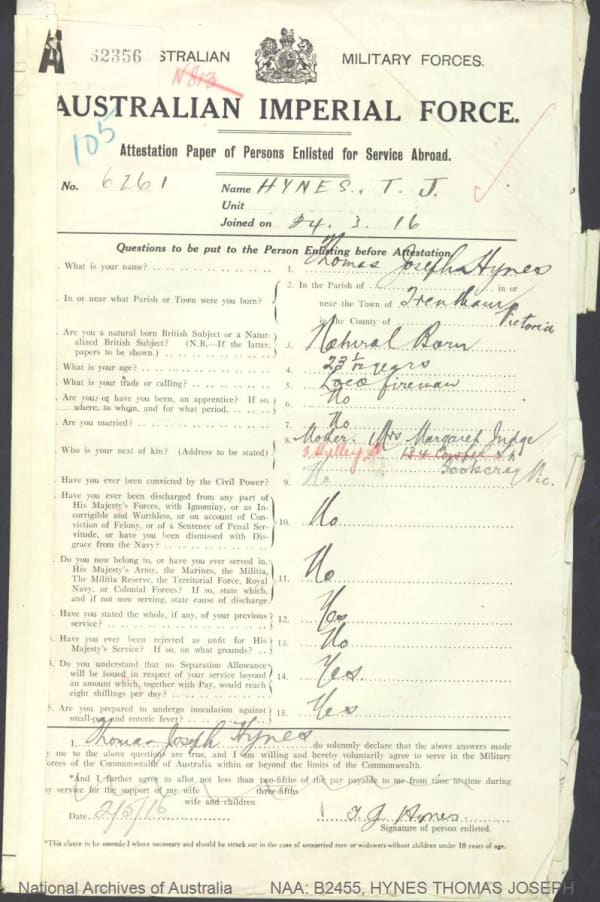 A 62356 STRALIAN MILITARY FORCES.
N813
AUSTRALIAN IMPERIAL FORCE.
105
Attestation Paper of Persons Enlisted for Service Abroad.
No. 6261 Name HYNES, T. J.
Unit
Joined on 24. 3. 16
Questions to be put to the Person Enlisting before Attestation.
. What is your name? 1. Thomas Joseph Hynes
. In or near what Parish or Town were you born? 2. In the Parish of in or
near the Town of Trentham
in the County of Victoria
. Are you a natural born British Subject or a Natur-
alized British Subject? (N.B.—If the latter,
papers to be shown.) 3. Natural Born
. What is your age? 4. 23 1/12 years
. What is your trade or calling? 5. Loco fireman
. Are you, or have you been, an apprentice? If so,
where, to whom, and for what period, 6. No
. Are you married? 7. No
. Who is your next of kin? (Address to be stated) 8. Mother. Mrs Margaret Judge
134 Cowper St
Footscray Vic.
. Have you ever been convicted by the Civil Power? 9. No
. Have you ever been discharged from any part of
His Majesty's Forces, with Ignominy, or as In-
corrigible and Worthless, or on account of Con-
viction of Felony, or of a Sentence of Penal Ser-
vitude, or have you been dismissed with Dis-
grace from the Navy? 10. No
. Do you now belong to, or have you ever served in,
His Majesty's Army, the Marines, the Militia,
The Militia Reserve, the Territorial Force, Royal
Navy, or Colonial Forces? If so, state which,
and if not now serving, state cause of discharge 11. No
. Have you stated the whole, if any, of your previous
service? 12. Yes
. Have you ever been rejected as unfit for His
Majesty's Service? If so, on what grounds? 13. No
4. Do you understand that no Separation Allowance
will be issued in respect of your service beyond
an amount which, together with Pay, would reach
eight shillings per day? 14. Yes
5. Are you prepared to undergo inoculation against
small-pox and enteric fever? 15. Yes
I, Thomas Joseph Hynes do solemnly declare that the above answers made
by me to the above questions are true, and I am willing and hereby voluntarily agree to serve in the Military
Forces of the Commonwealth of Australia within or beyond the limits of the Commonwealth.
*And I further agree to allot not less than two-fifths of the pay payable to me from time to time during
my service for the support of my wife three-fifths
wife and children
Date 2/5/16 T. J. Hynes
Signature of person enlisted.
*This clause to be amended where necessary and should be struck out in the case of unmarried men or widowers without children under 18 years of age.
National Archives of Australia NAA: B2455, HYNES THOMAS JOSEPH